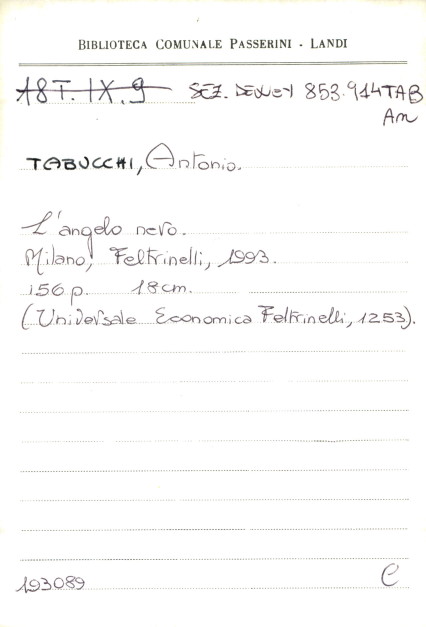 BIBLIOTECA COMUNALE PASSERINI - LANDI
18T.IX.9 SEZ. DEWEY 853.914TAB
An
TABUCCHI, Antonio.
L'angelo nero.
Milano, Feltrinelli, 1993.
156 p. 18 cm.
(Universale Economica Feltrinelli, 1253).
193089 C